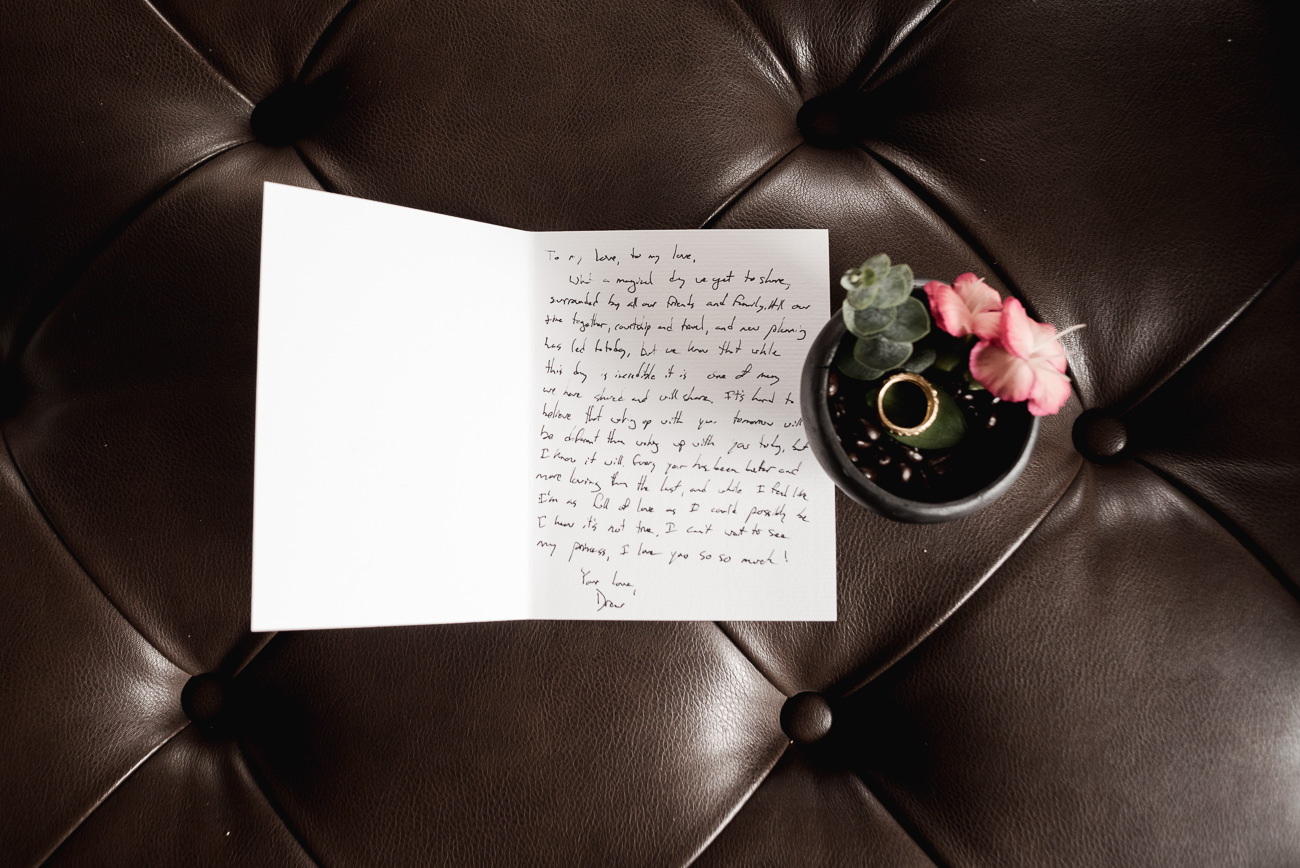 To my love, to my love,
What a magical day we get to share,
surrounded by all our friends and family. All our
time together, courtship and travel, and now planning
has led to today, but we know that while
this day is incredible it is one of many
we have shared and will share. It's hard to
believe that waking up with you tomorrow will
be different than waking up with you today, but
I know it will. Every year has been better and
more loving than the last, and while I feel like
I'm as full of love as I could possibly be
I know it's not true. I can't wait to see
my princess, I love you so so much!
Your love,
Drew